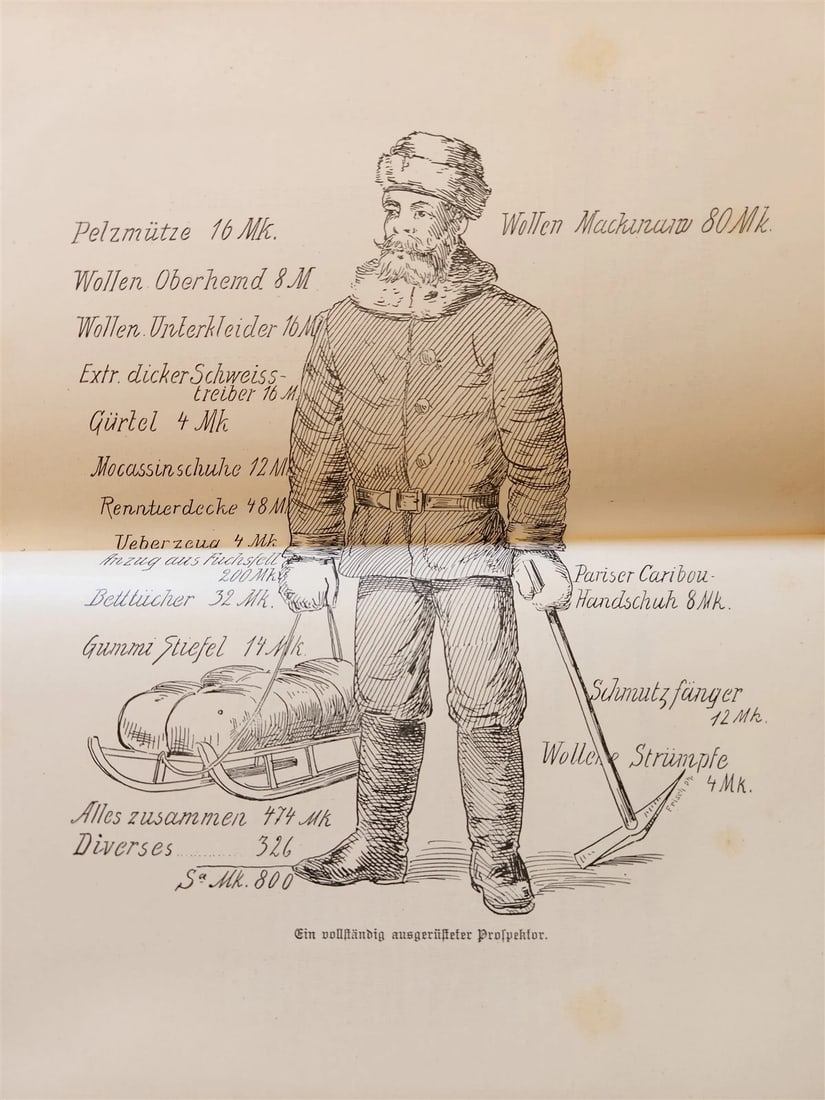 Pelzmütze 16 Mk.
Wollen Oberhemd 8 M
Wollen. Unterkleider 16 M
Extr. dicker Schweiss-
treiber 16 M.
Gürtel 4 Mk
Mocassinschuhe 12 M
Renntierdecke 48 M
Ueberzeug 4 Mk.
Anzug aus Fuchsfell
200 Mk.
Betttücher 32 Mk.
Gummi Stiefel 14 Mk.
Alles zusammen 474 Mk
Diverses ........... 326
Sa Mk. 800
Wollen Mackinaw 80 Mk.
Pariser Caribou-
Handschuh 8 Mk.
Schmutzfänger
12 Mk.
Wollene Strümpfe
4 Mk.
Ein vollständig ausgerüsteter Prospektor.